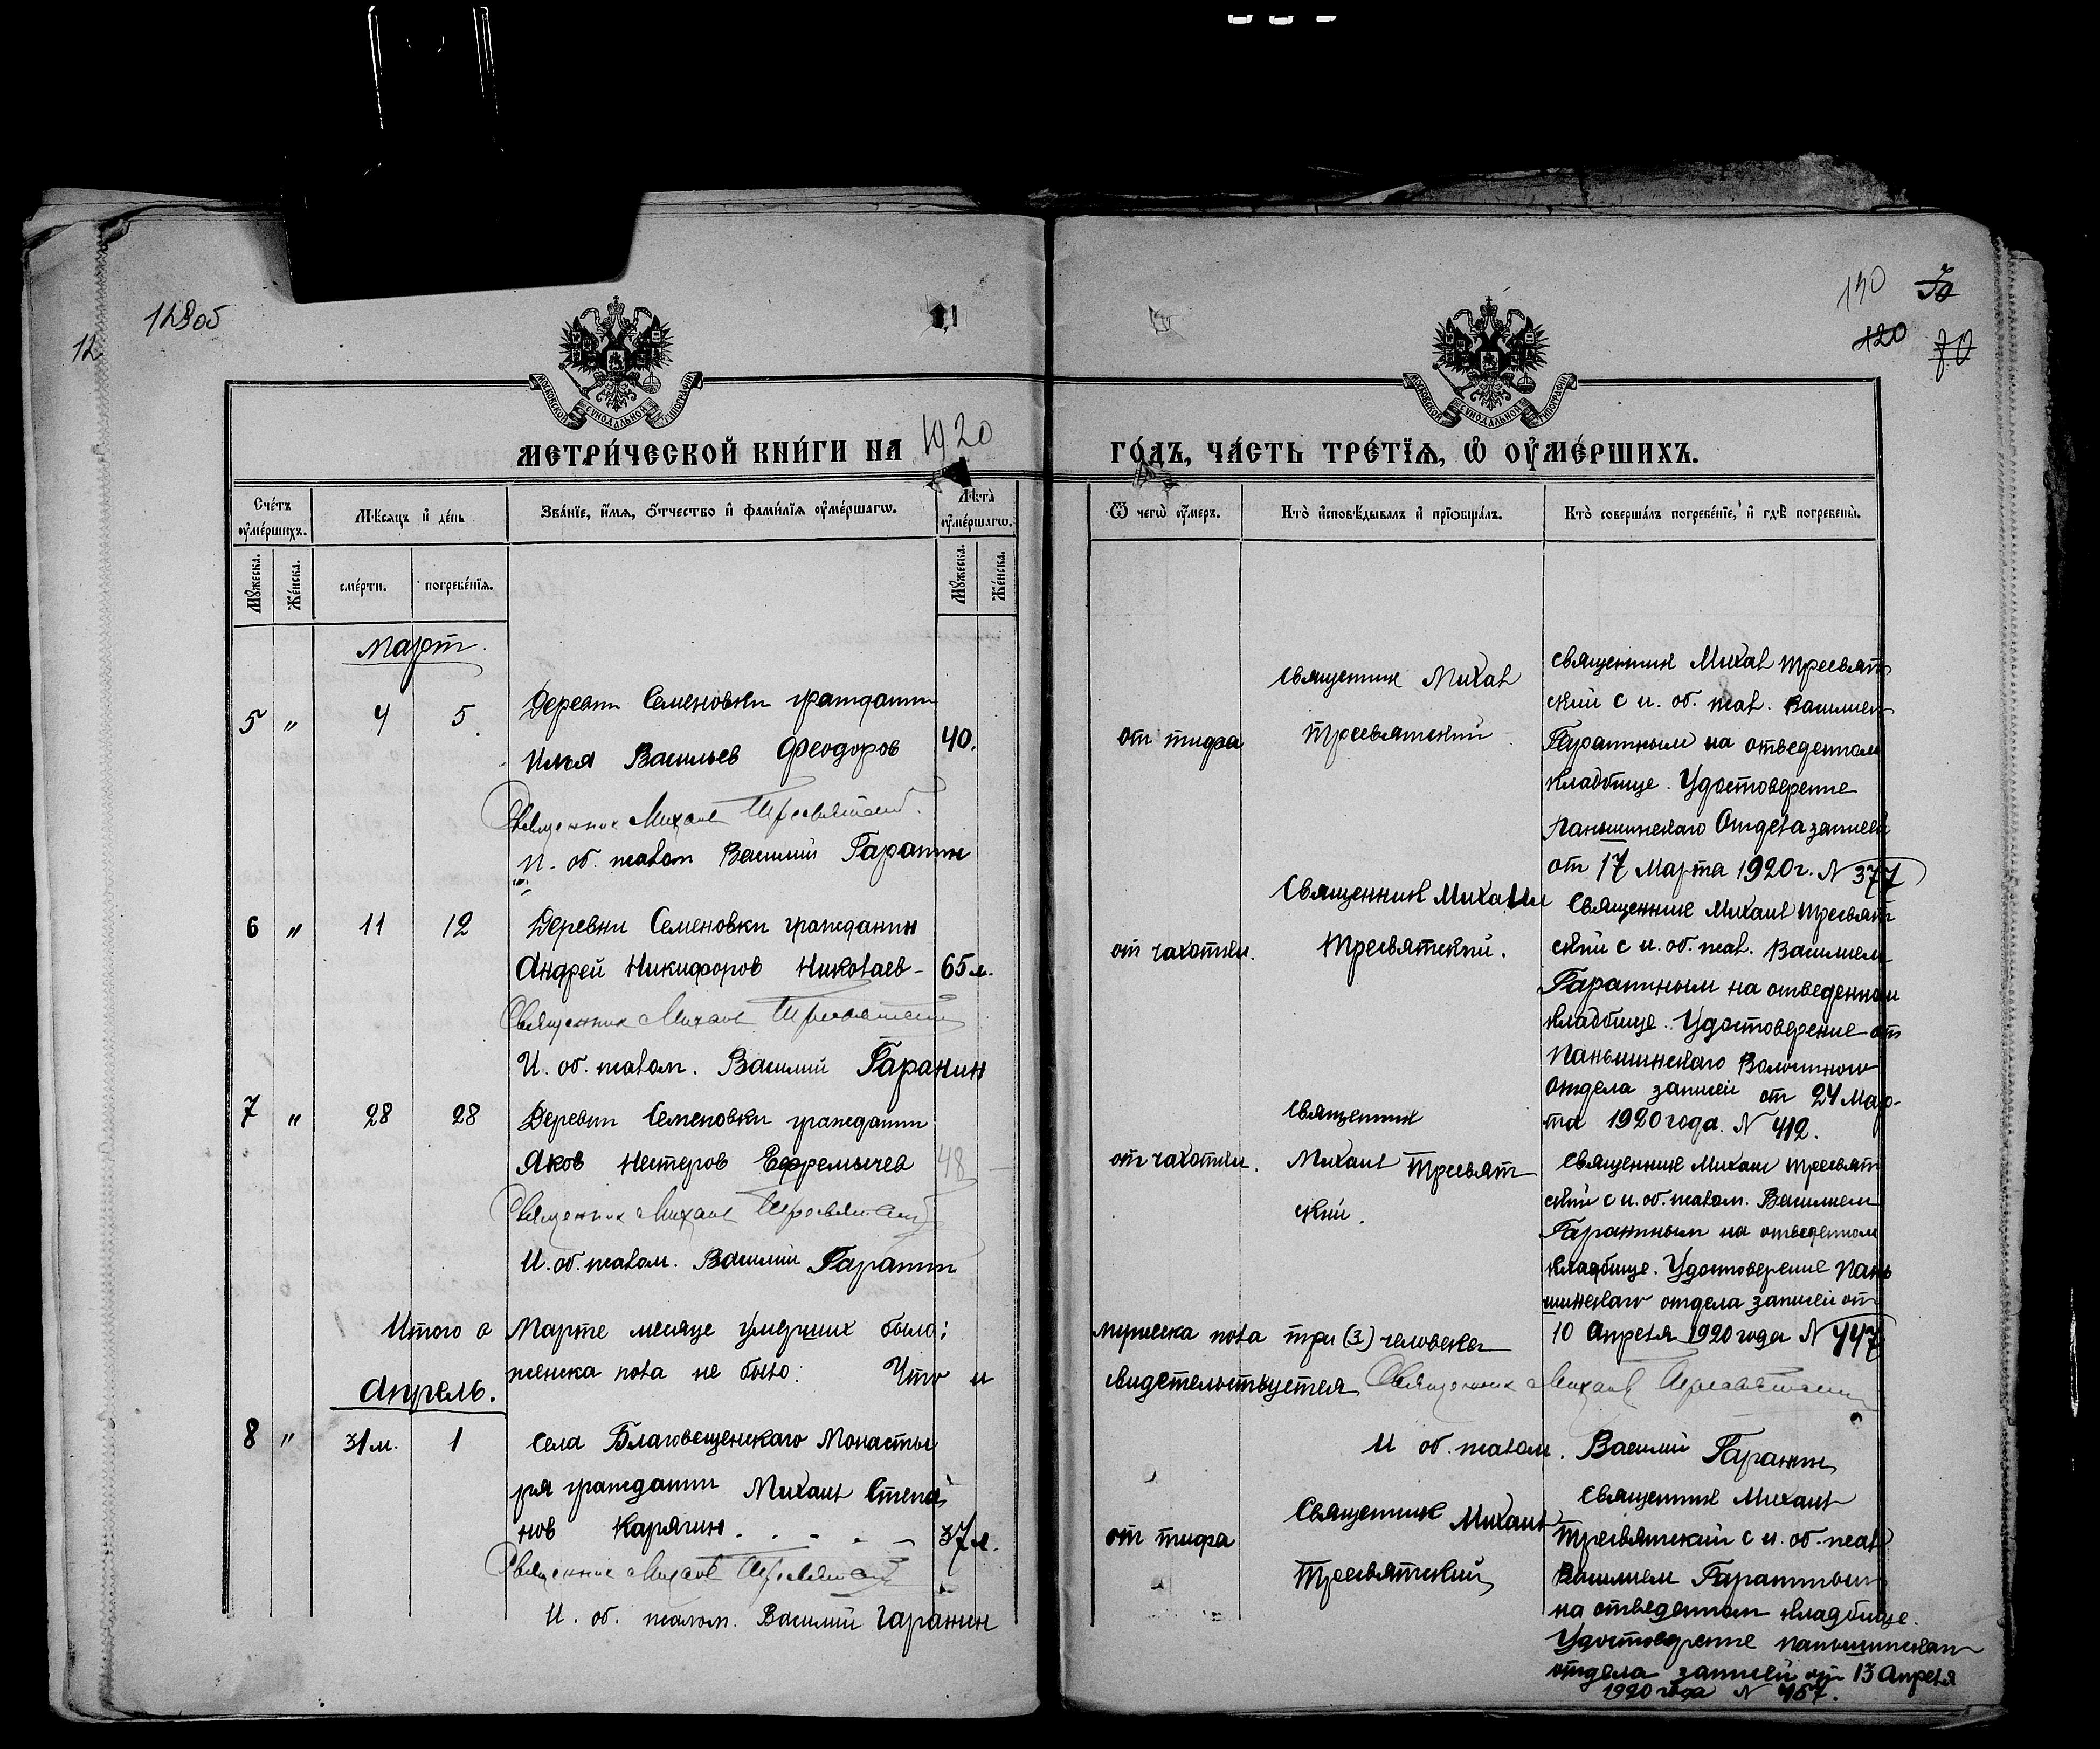 128об
12
11
130
70
120
70
МОСКОВСКОЙ СѴНОДАЛЬНОЙ ТИПОГРАФІИ
МОСКОВСКОЙ СѴНОДАЛЬНОЙ ТИПОГРАФІИ
МЕТРИ́ЧЕСКОЙ КНИ́ГИ НА 1920 ГО́ДЪ, ЧА́СТЬ ТРЕ́ТЇѦ, Ѡ҆ ОУ҆МЕ́РШИХЪ.
Сче́тъ оу҆ме́ршихъ.
Мѣ́сяцъ и҆ де́нь
Зва́нїе, и҆́мѧ, ѻ҆́тчество и҆ фами́лїѧ оу҆ме́ршагѡ.
Лѣ́та оу҆ме́ршагѡ.
Ѿ чегѡ̀ оу҆́меръ.
Кто̀ и҆сповѣ́дывалъ и҆ прїѡбща́лъ.
Кто̀ соверша́лъ погребе́нїе, и҆ гдѣ̀ погребены̀.
Мꙋ́жеска.
Же́нска.
сме́рти.
погребе́нїѧ.
Мꙋ́жеска.
Же́нска.
Март.
5 " 4 5.
Деревни Семеновки гражданин
Илья Васильев Феодоров 40.
Священник Михаил Тресвятский.
И. об. псалом Василий Гаранин
от тифа
Священник Михаил
Тресвятский.
Священник Михаил Тресвят
ский с и. об. псал. Василием
Гараниным на отведенном
кладбище. Удостоверение
Паньшинскаго Отдела записей
от 17 Марта 1920 г. N 377
6 " 11 12
Деревни Семеновки гражданин
Андрей Никифоров Николаев - 65 л.
Священник Михаил Тресвятский
И. об. псалом. Василий Гаранин
от чахотки.
Священник Михаил
Тресвятский.
Священник Михаил Тресвят
ский с и. об. псал. Василием
Гараниным на отведенном
кладбище. Удостоверение от
Паньшинскаго Волостного
отдела записей от 24 Мар-
та 1920 года. N 412.
7 " 28 28
Деревни Семеновки гражданин
Яков Нестеров Ефремычев 48
Священник Михаил Тресвятский
И. об. псалом. Василий Гаранин
от чахотки.
Священник
Михаил Тресвят
ский.
Священник Михаил Тресвят
ский с и. об. псалом. Василием
Гараниным на отведенном
кладбище. Удостоверение Пань
шинскаго отдела записей от
10 Апреля 1920 года N 447
Итого в Марте месяце умерших было: мужеска пола три (3) человека
женска пола не было: Что и свидетельствуется Священник Михаил Тресвятский
И об. псалом. Василий Гаранин
Апрель.
8 " 31 м. 1
Села Благовещенскаго Монасты
ря гражданин Михаил Степа
нов Карягин. 37 л.
Священник Михаил Тресвятский
И. об. псалом. Василий Гаранин
от тифа
Священник Михаил
Тресвятский
Священник Михаил
Тресвятский с и. об. псал
Василием Гараниным
на отведенном кладбище.
Удостоверение Паньшинскаго
отдела записей от 13 Апреля
1920 года N 457.